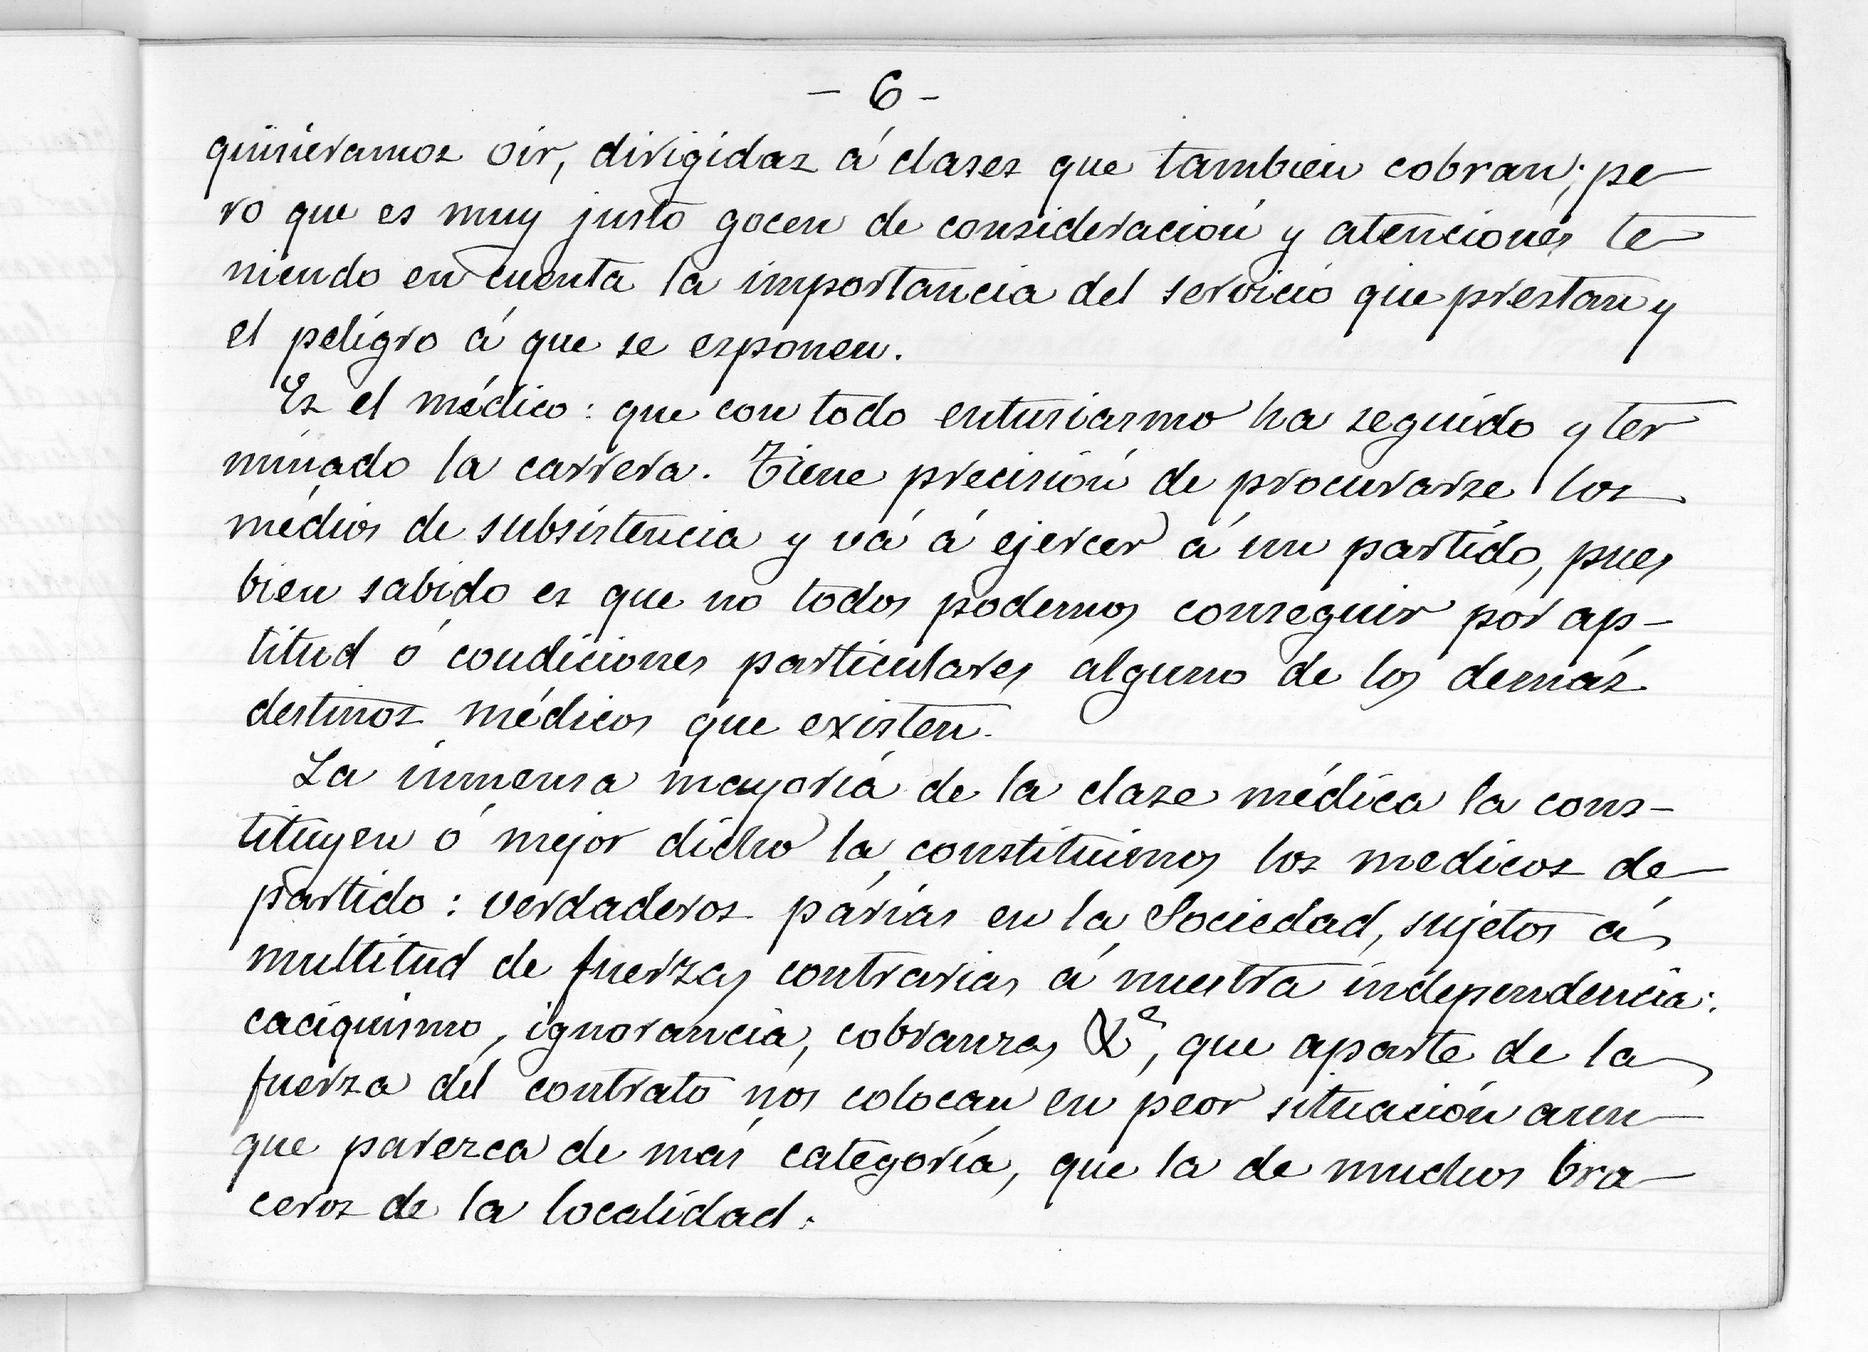 - 6 -
quisieramos oir, dirigidas á clases que tambien cobran; pe
ro que es muy justo gocen de consideración y atenciones te
niendo en cuenta la importancia del servicio que prestan y
el peligro á que se esponen.
Es el médico: que con todo entusiasmo ha seguido y ter
minado la carrera. Tiene precisión de procurarse los
médios de subsistencia y vá á ejercer á un partido, pues
bien sabido es que no todos podemos conseguir por ap-
titud ó condiciones particulares alguno de los demás
destinos médicos que existen.
La inmensa mayoría de la clase médica la cons-
tituyen ó mejor dicho la constituimos los medicos de
partido: verdaderos párias en la Sociedad, sujetos á
multitud de fuerzas contrarias á nuestra independencia:
caciquismo, ignorancia, cobranzas &ª, que aparte de la
fuerza del contrato nos colocan en peor situación aun
que parezca de más categoría, que la de muchos bra
ceros de la localidad.